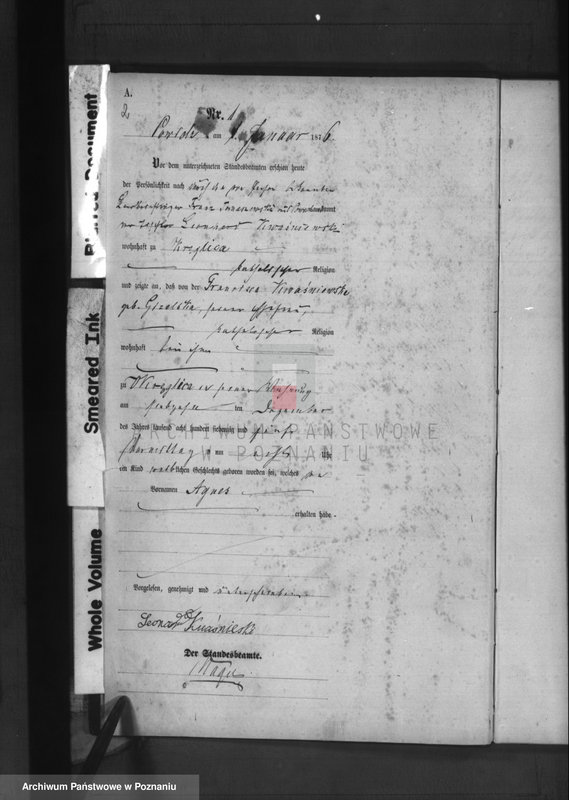 A.
2
Nr. 1
am 1. Januar 1876.
Vor dem unterzeichneten Standesbeamten erschien heute
der Persönlichkeit nach
Franz
Leonhard Kwaśniewski
wohnhaft zu Okręglica
katholischer Religion
und zeigte an, daß von der Francisca Kwaśniewska
geb. seiner Ehefrau,
katholischer Religion
wohnhaft bei ihm
zu Okręglica in seiner Wohnung
am ten Dezember
des Jahres tausend acht hundert siebenzig und fünf
Vormittags um Uhr
ein Kind weiblichen Geschlechts geboren worden sei, welches
Vornamen Agnes
erhalten habe.
Vorgelesen, genehmigt und unterschrieben
Leonard Kwaśnieski
Der Standesbeamte.
ARCHIWUM PAŃSTWOWE
W POZNANIU
Blurred Document
Smeared Ink
Whole Volume
Archiwum Państwowe w Poznaniu